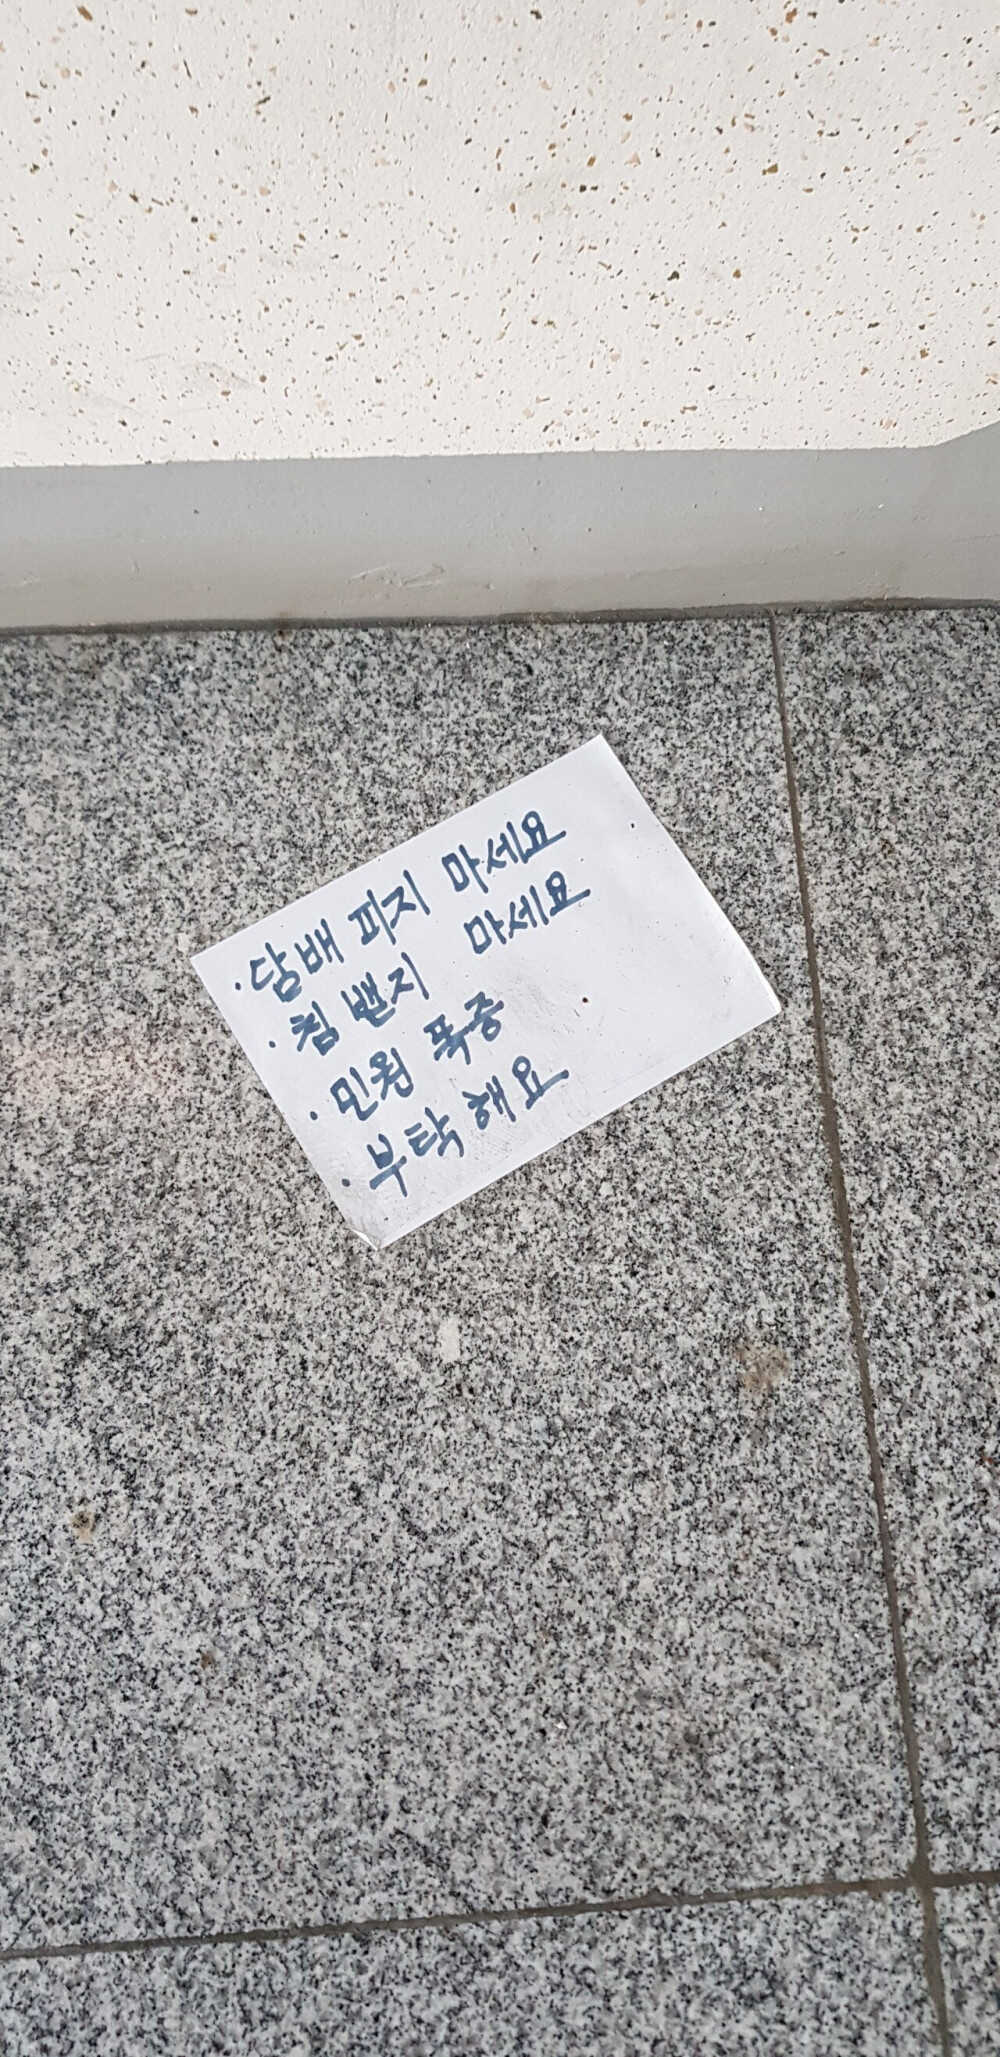 · 담배 피지 마세요
· 침 밷지 마세요
· 민원 폭증
· 부탁해요